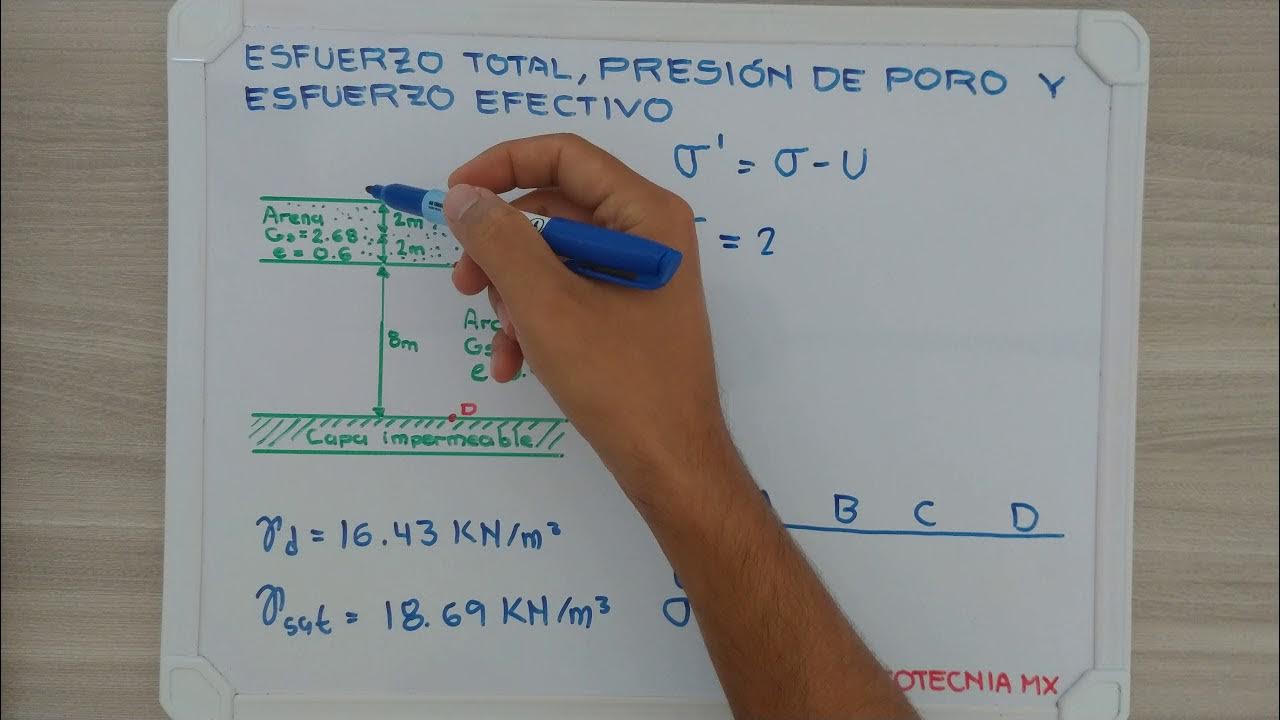 ESFUERZO TOTAL, PRESIÓN DE PORO Y
ESFUERZO EFECTIVO
σ' = σ - U
= 2
Arena
Gs = 2.68
e = 0.6
2m
2m
8m
D
Capa impermeable
γd = 16.43 KN/m³
γsat = 18.69 KN/m³
B C D
σ
MX